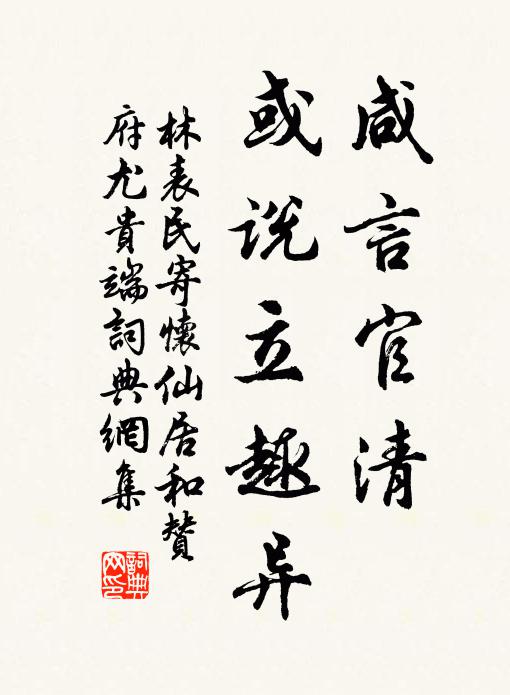 咸言官清
或说立趣异
林表民寄懷仙居和贊
府尤貴端詞典網集
詞典
网印